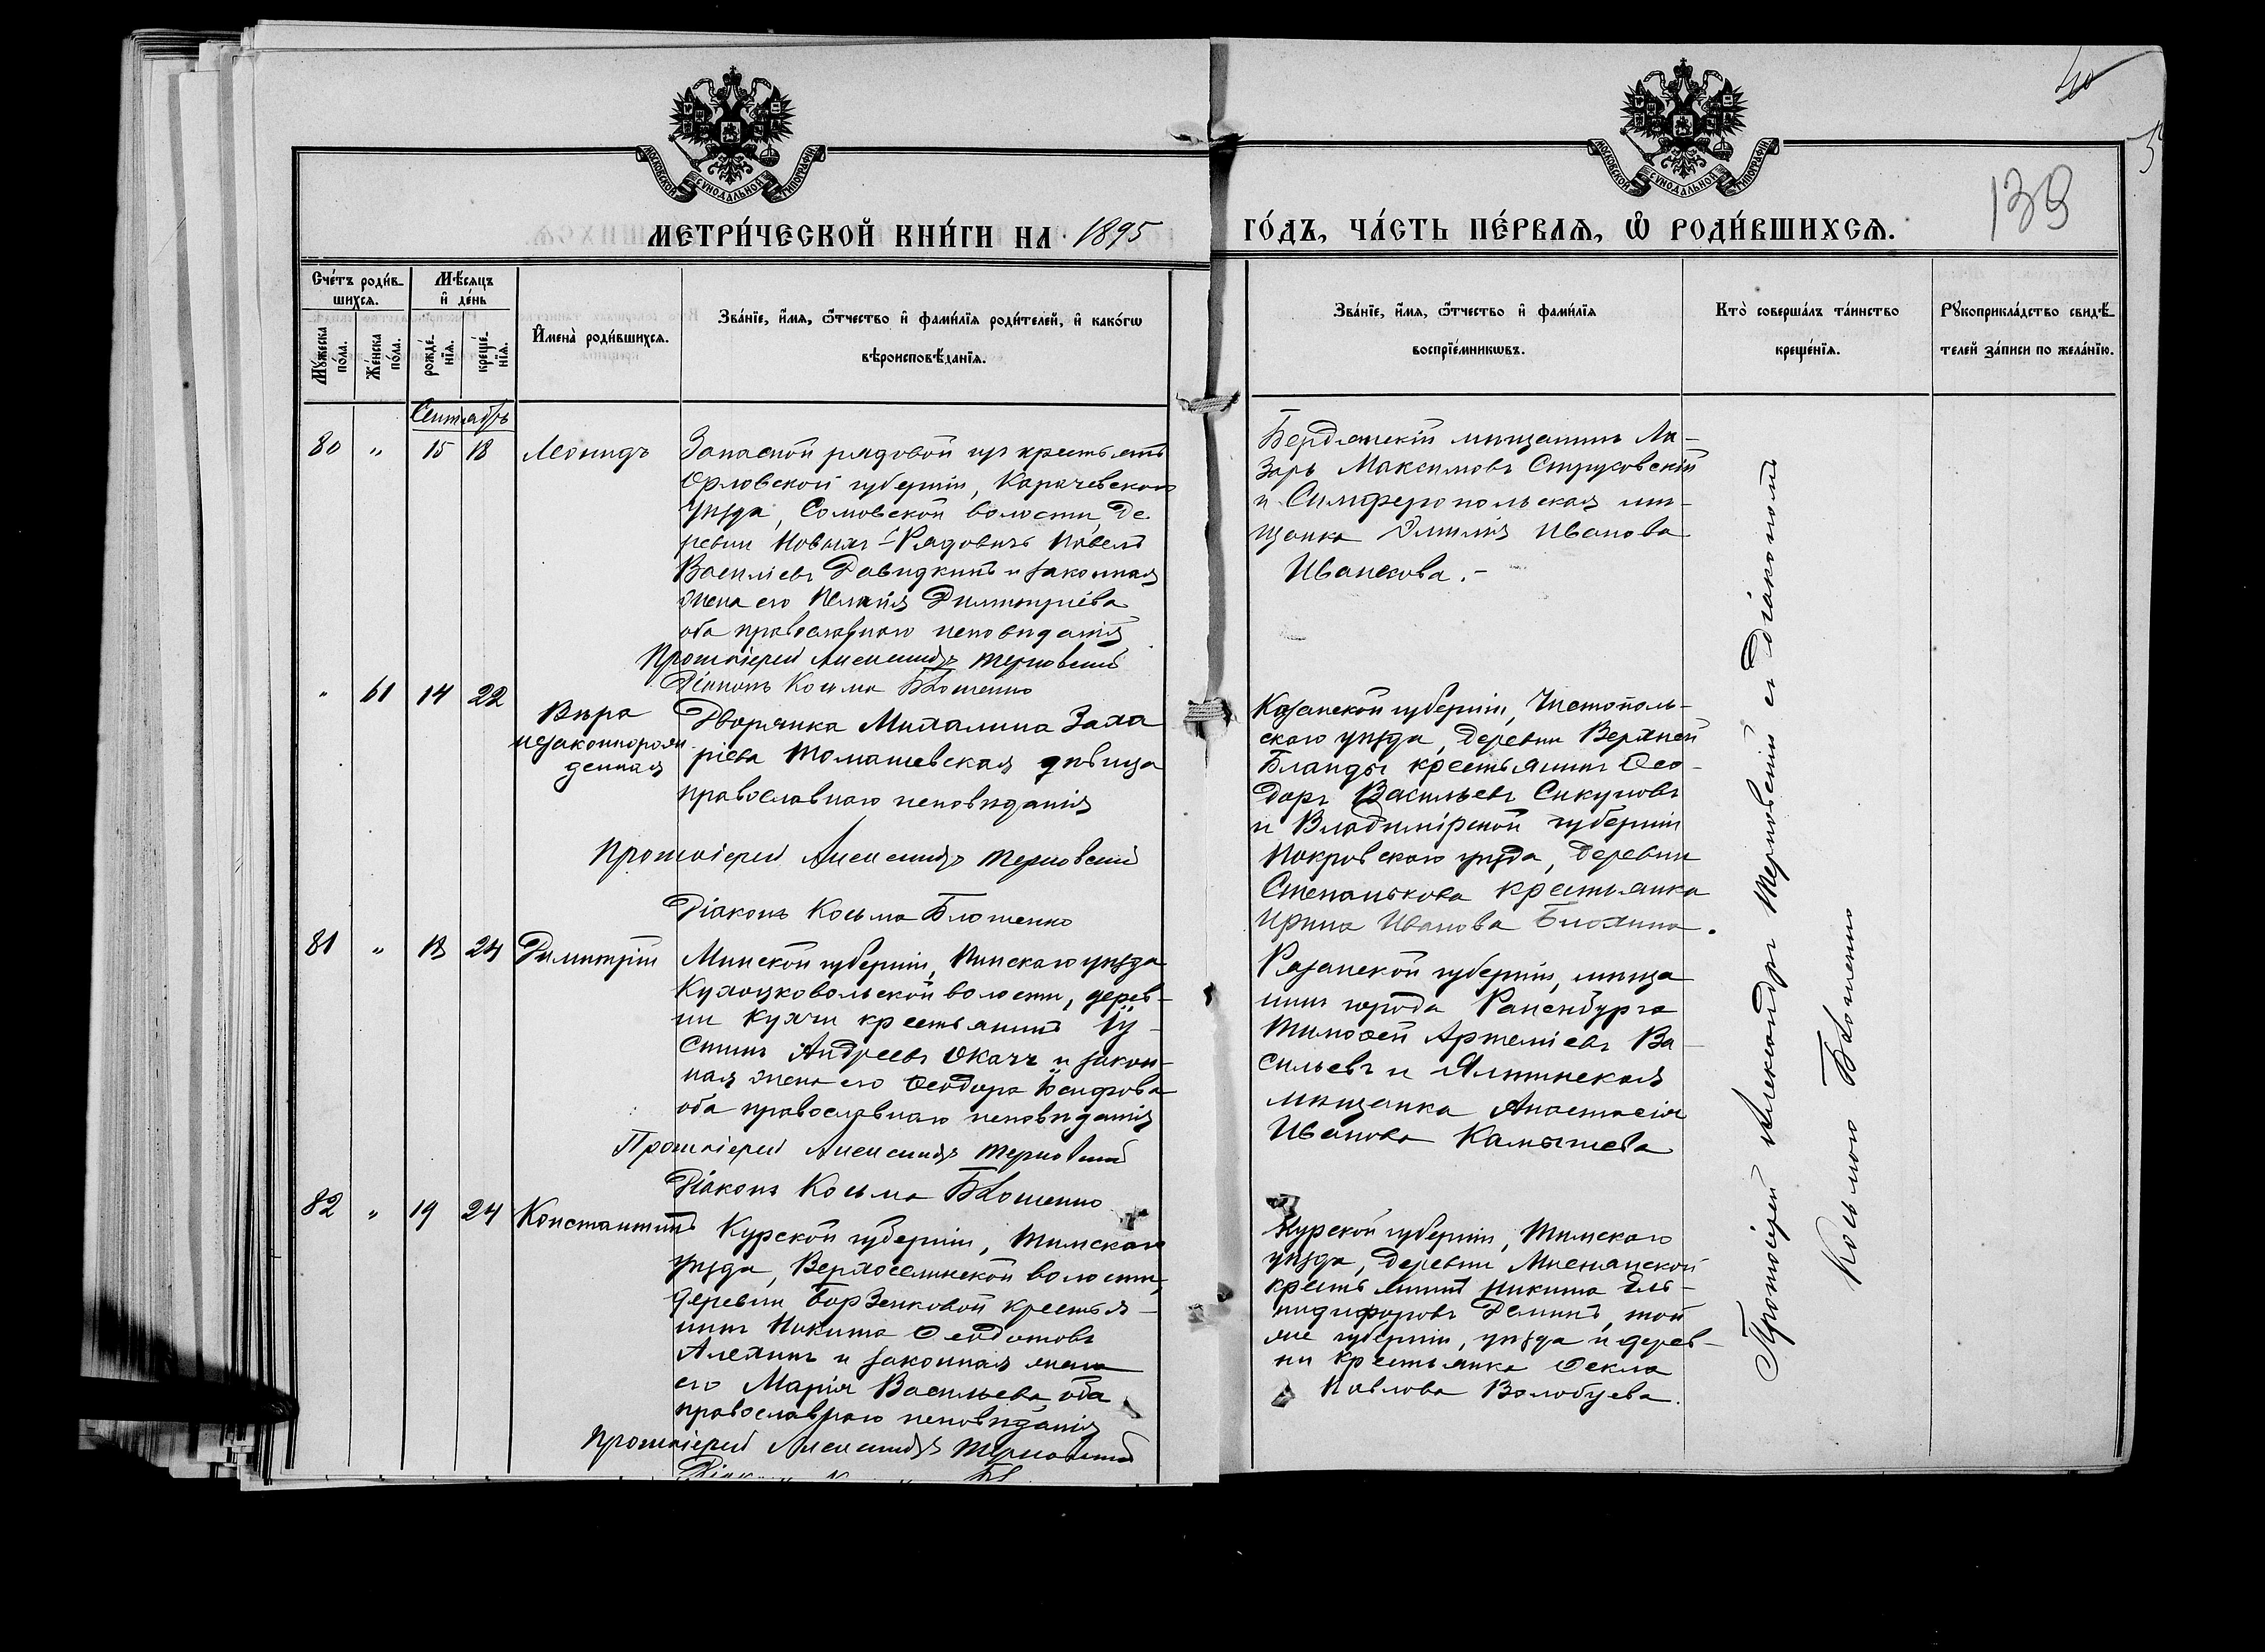 40
5
139
МОСКОВСКОЙ СѴНОДАЛЬНОЙ ТИПОГРАФІИ
МОСКОВСКОЙ СѴНОДАЛЬНОЙ ТИПОГРАФІИ
МЕТРИ́ЧЕСКОЙ КНИ́ГИ НА 1895 ГО́ДЪ, ЧА́СТЬ ПЕ́РВАѦ, Ѡ҆ РОДИ́ВШИХСѦ.
Сче́тъ роди́в-
шихсѧ.
Мꙋ́жеска по́ла.
Же́нска по́ла.
Мѣ́сѧцъ
и҆ де́нь
рожде́-
нїѧ.
креще́-
нїѧ.
И҆мена̀ роди́вшихсѧ.
Зва́нїе, и҆́мѧ, ѻ҆́тчество и҆ фами́лїѧ роди́телей, и҆ како́гѡ
вѣроисповѣ́данїѧ.
Зва́нїе, и҆́мѧ, ѻ҆́тчество и҆ фами́лїѧ
воспрїе́мникѡвъ.
Кто̀ соверша́лъ та́инство
креще́нїѧ.
Рꙋкоприкла́дство свидѣ́-
телей за́писи по жела́нїю.
Сентябрь
80 " 15 18 Леонидъ
Запасной рядовой изъ крестьянъ
Орловской губерніи, Карачевскаго
уѣзда, Сомовской волости, де
ревни Новыхъ-Рядовичъ Павелъ
Василіевъ Давидкинъ и законная
жена его Димитріева
оба православнаго исповѣданія
Протоіерей Александръ Терновскій
Діаконъ Косьма Блошенко
Бердянскій мѣщанинъ Ла-
зарь Максимовъ Струковскій
и Симферопольская мѣ-
щанка Эмилія Иванова
Иванова.-
" 61 14 22 Вѣра
незаконнорож
денная
Дворянка Михалина Заха
ріева Томашевская дѣвица
православнаго исповѣданія
Протоіерей Александръ Терновскій
Діаконъ Косьма Блошенко
Казанской губерніи, Чистополь-
скаго уѣзда, деревни Верхней
Бланды крестьянинъ Ѳео-
доръ Васильевъ Сикуновъ
и Владимірской губерніи
Покровскаго уѣзда, деревни
Степанькова крестьянка
Ирина Иванова Блохина.
81 " 18 24 Димитрій
Минской губерніи, Пинскаго уѣзда
Кухоцковольской волости, дерев-
ни Кухчи крестьянинъ Іу-
стинъ Андреевъ Окачъ и закон-
ная жена его Ѳеодора Іосифова
оба православнаго исповѣданія
Протоіерей Александръ Терновскій
Діаконъ Косьма Блошенко
Рязанской губерніи, мѣща
нинъ города Раненбурга
Тимоѳей Артеміевъ Ва-
сильевъ и Ялтинская
мѣщанка Анастасія
Иванова Камышева
82 " 19 24 Константинъ
Курской губерніи, Тимскаго
уѣзда, Верхоселинской волости,
деревни Борзенковой крестья-
нинъ Никита Ѳеодотовъ
Алехинъ и законная жена
его Марія Васильева, оба
православнаго исповѣданія
Протоіерей Александръ Терновскій
Курской губерніи, Тимскаго
уѣзда, деревни
крестьянинъ Никита Ель-
пидифоровъ Деминъ, той
же губерніи, уѣзда и дерев-
ни крестьянка Ѳекла
Павлова Волобуева.
Протоіерей Александръ Терновскій съ діакономъ
Косьмою Блошенко